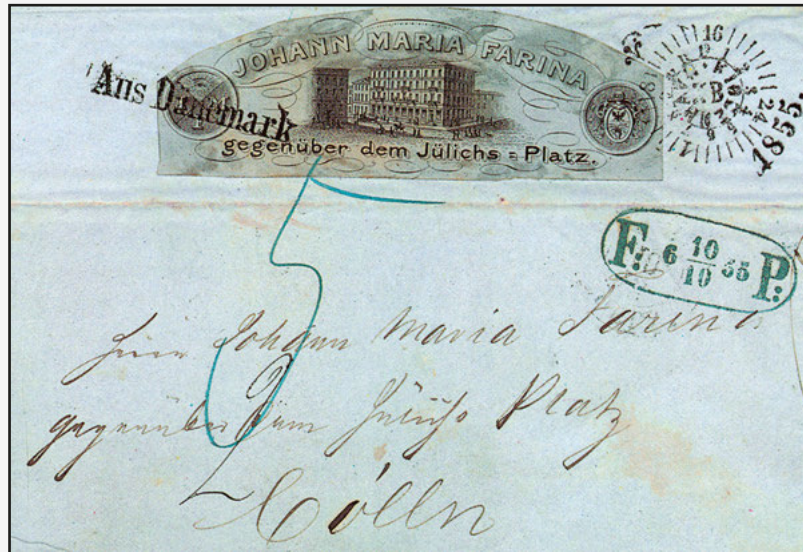 JOHANN MARIA FARINA
Aus Dänemark
gegenüber dem Jülichs=Platz.
1855.
F: 6 10/10 55 P:
5
Johann Maria Farina
gegenüber dem Jülichs Platz
Cölln